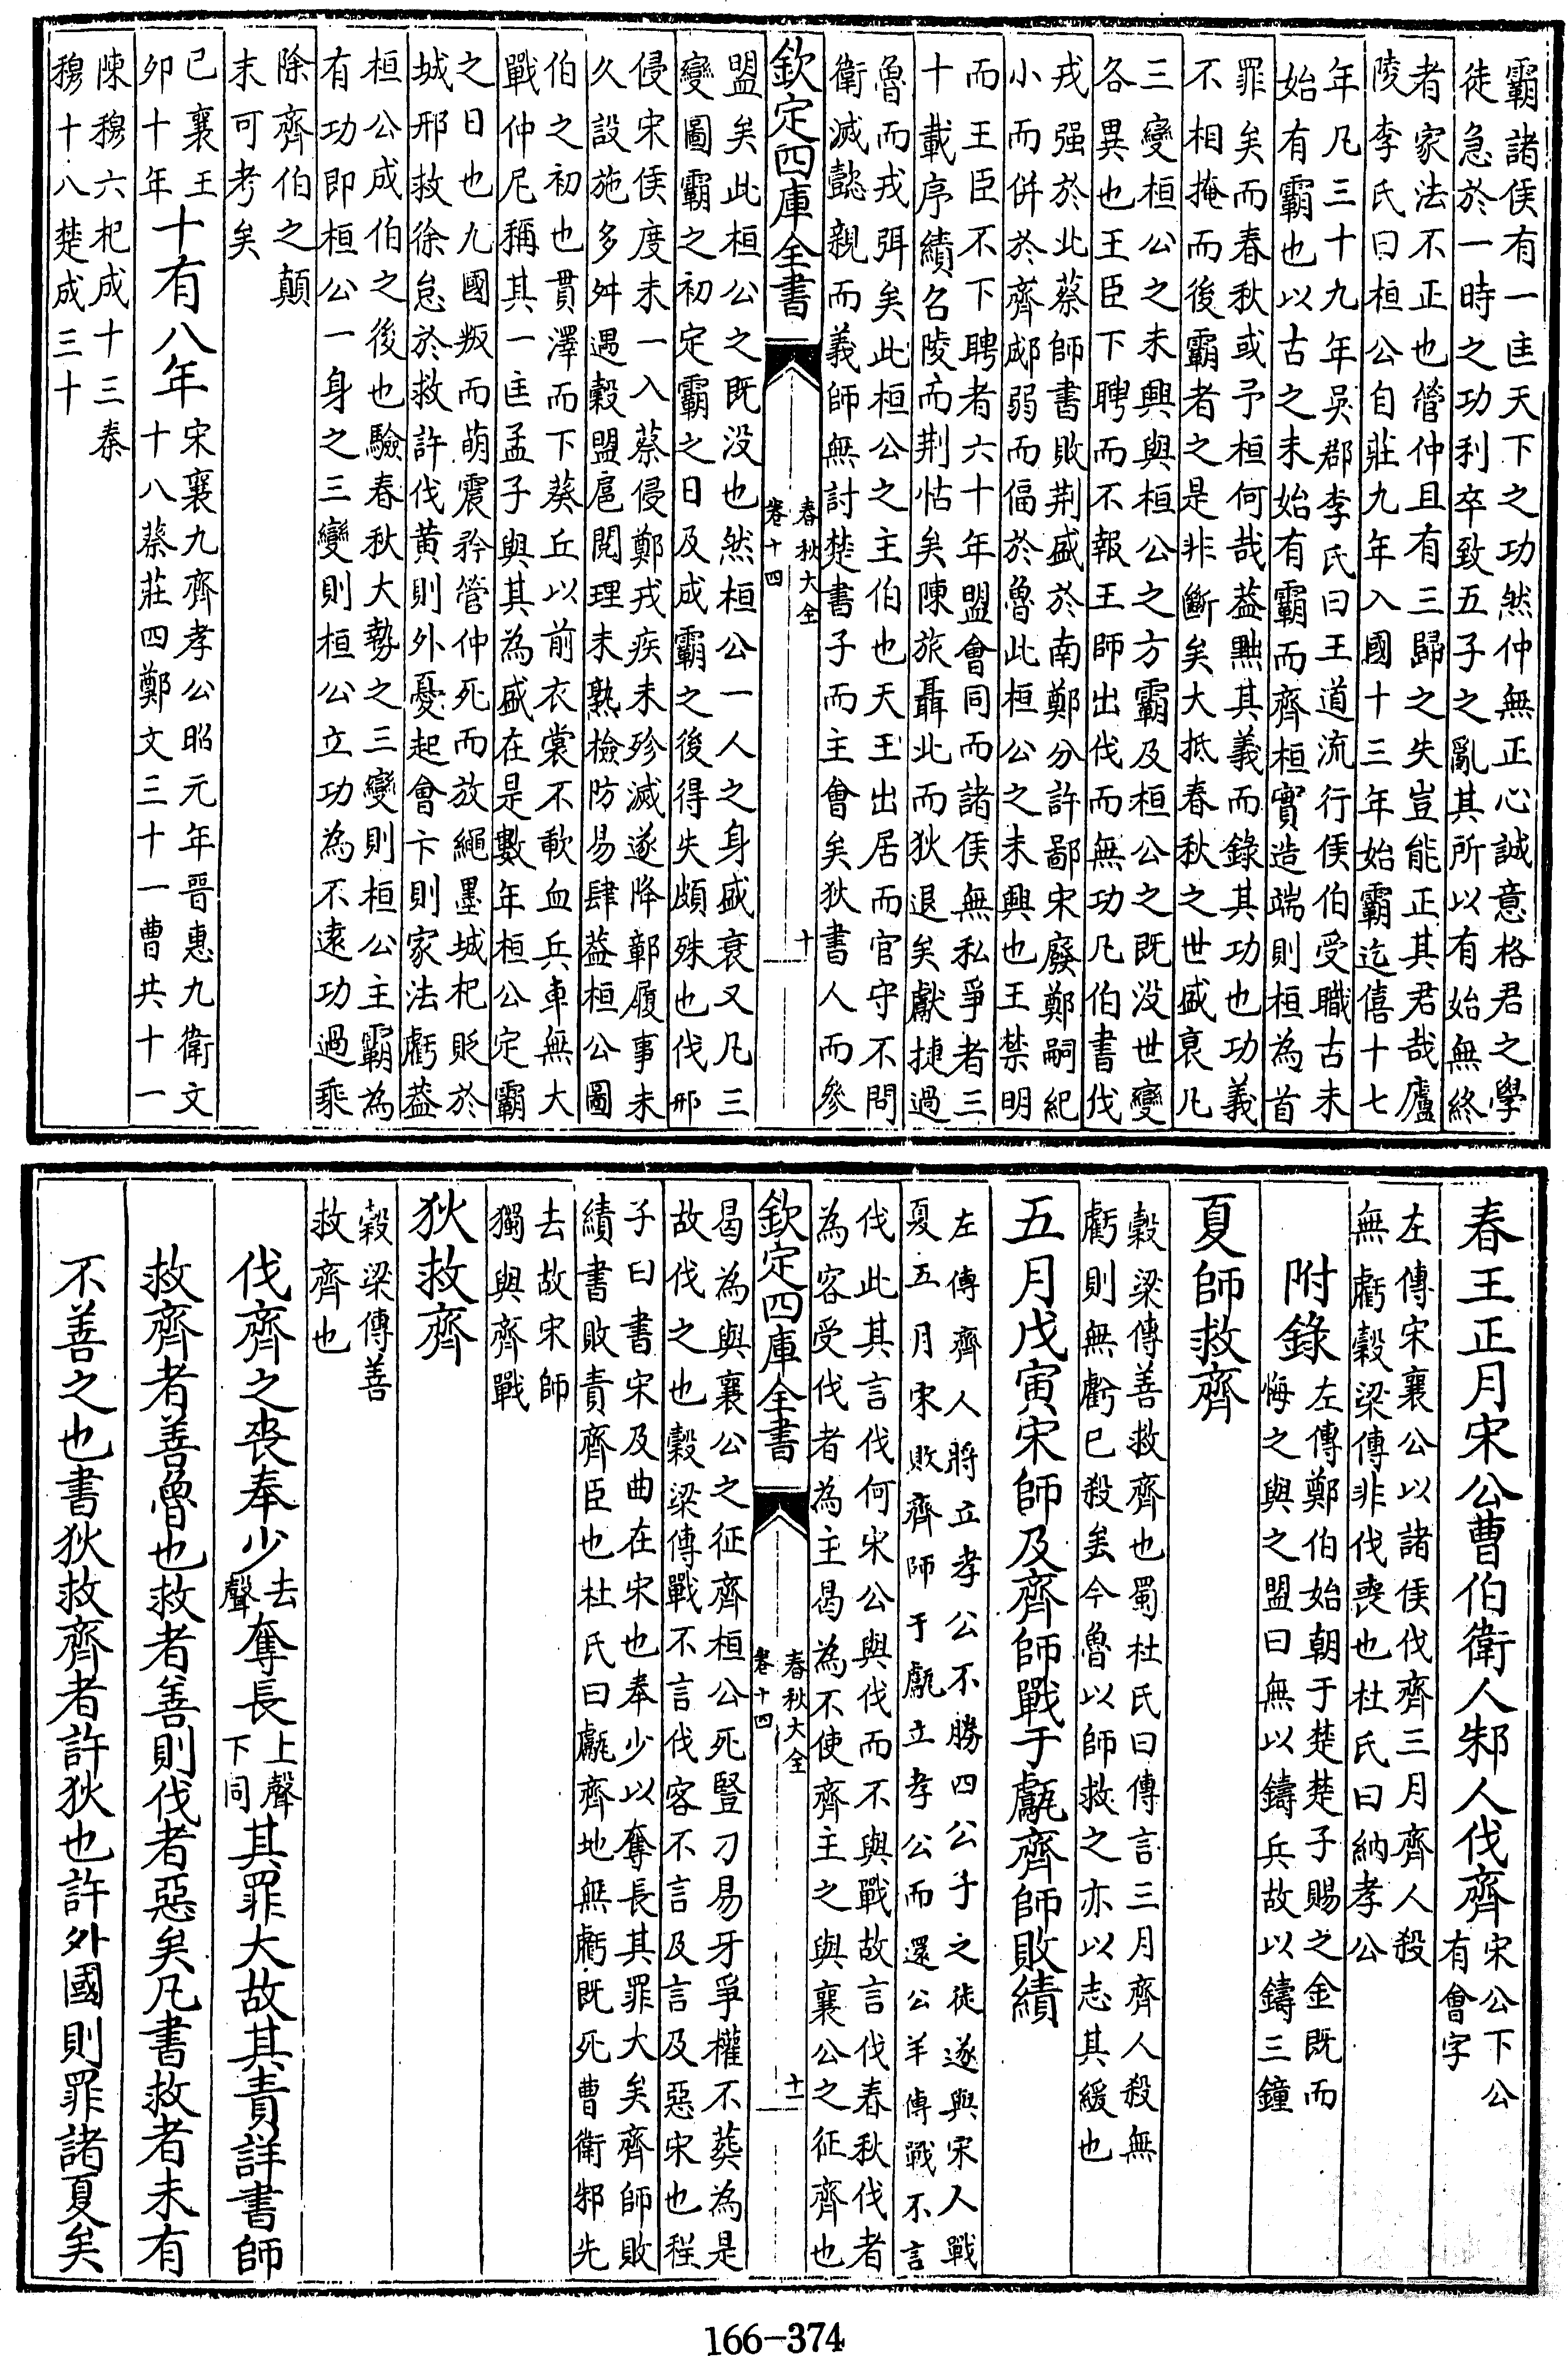 霸諸侯有一匡天下之功然仲無正心誠意格君之學
徒急於一時之功利卒致五子之亂其所以有始無終
者家法不正也管仲且有三歸之失豈能正其君哉廬
陵李氏曰桓公自莊九年入國十三年始霸迄僖十七
年凡三十九年吳郡李氏曰王道流行侯伯受職古未
始有霸也以古之未始有霸而齊桓實造端則桓為首
罪矣而春秋或予桓何哉蓋黜其義而錄其功也功義
不相掩而後霸者之是非斷矣大抵春秋之世盛衰凡
三變桓公之未興與桓公之方霸及桓公之既沒世變
各異也王臣下聘而不報王師出伐而無功凡伯書伐
戎强於此蔡師書敗荆盛於南鄭分許鄙宋廢鄭嗣紀
小而併於齊郕弱而偪於魯此桓公之未興也王禁明
而王臣不下聘者六十年盟會同而諸侯無私爭者三
十載序績召陵而荆怗矣陳旅聶北而狄退矣獻捷過
魯而戎弭矣此桓公之主伯也天王出居而官守不問
衛滅懿親而義師無討楚書子而主會矣狄書人而參
欽定四庫全書
春秋大全
卷十四
十
盟矣此桓公之既没也然桓公一人之身盛衰又凡三
變圖霸之初定霸之日及成霸之後得失頗殊也伐邢
侵宋侯度未一入蔡侵鄭戎疾未殄滅遂降鄣履事未
久設施多舛遇穀盟扈閱理未熟檢防易肆蓋桓公圖
伯之初也貫澤而下葵丘以前衣裳不歃血兵車無大
戰仲尼稱其一匡孟子與其為盛在是數年桓公定霸
之日也九國叛而萌震矜管仲死而放繩墨城杞貶於
城邢救徐怠於救許伐黄則外憂起會卞則家法虧蓋
桓公成伯之後也驗春秋大勢之三變則桓公主霸為
有功即桓公一身之三變則桓公立功為不遠功過乘
除齊伯之顛
末可考矣
已襄王
卯十年
十有八年
宋襄九齊孝公昭元年晉惠九衛文
十八蔡莊四鄭文三十一曹共十一
陳穆六杞成十三秦
穆十八楚成三十
春王正月宋公曹伯衛人邾人伐齊
宋公下公
有會字
左傳宋襄公以諸侯伐齊三月齊人殺
無虧穀梁傳非伐喪也杜氏曰納孝公
附錄
左傳鄭伯始朝于楚楚子賜之金既而
悔之與之盟曰無以鑄兵故以鑄三鐘
夏師救齊
穀梁傳善救齊也蜀杜氏曰傳言三月齊人殺無
虧則無虧已殺矣今魯以師救之亦以志其緩也
五月戊寅宋師及齊師戰于甗齊師敗績
左傳齊人將立孝公不勝四公子之徒遂與宋人戰
夏五月宋敗齊師于甗立孝公而還公羊傳戰不言
伐此其言伐何宋公與伐而不與戰故言伐春秋伐者
為客受伐者為主曷為不使齊主之與襄公之征齊也
欽定四庫全書
春秋大全
卷十四
十一
曷為與襄公之征齊桓公死豎刀易牙爭權不葬為是
故伐之也穀梁傳戰不言伐客不言及言及惡宋也程
子曰書宋及曲在宋也奉少以奪長其罪大矣齊師敗
績書敗責齊臣也杜氏曰甗齊地無虧既死曹衛邾先
去故宋師
獨與齊戰
狄救齊
穀梁傳善
救齊也
伐齊之喪奉少
去
聲
奪長
上聲
下同
其罪大故其責詳書師
救齊者善魯也救者善則伐者惡矣凡書救者未有
不善之也書狄救齊者許狄也許外國則罪諸夏矣
166-374